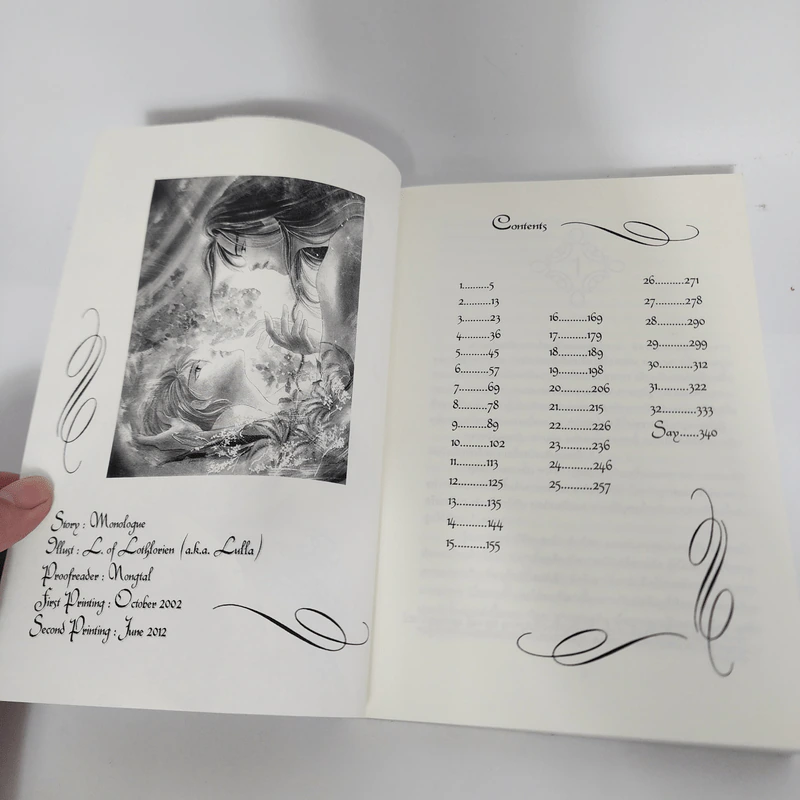 Story : Monologue
Illust : L. of Lothlorien (a.k.a. Lulla)
Proofreader : Nongtal
First Printing : October 2002
Second Printing : June 2012
Contents
1..........5
2..........13
3..........23
4..........36
5..........45
6..........57
7..........69
8..........78
9..........89
10..........102
11..........113
12..........125
13..........135
14..........144
15..........155
16..........169
17..........179
18..........189
19..........198
20..........206
21..........215
22..........226
23..........236
24..........246
25..........257
26..........271
27..........278
28..........290
29..........299
30..........312
31..........322
32..........333
Say......340